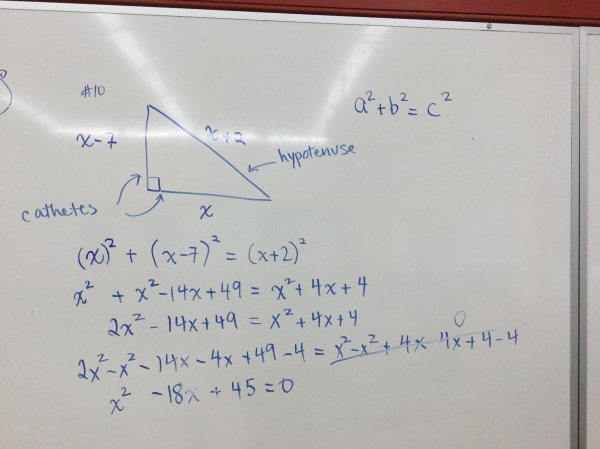 #10
a² + b² = c²
x-7
x+2
hypotenuse
cathetes
x
(x)² + (x-7)² = (x+2)²
x² + x² -14x + 49 = x² + 4x + 4
2x² - 14x + 49 = x² + 4x + 4
0
2x² - x² - 14x - 4x + 49 - 4 = x² - x² + 4x 4x + 4 - 4
x² - 18x + 45 = 0